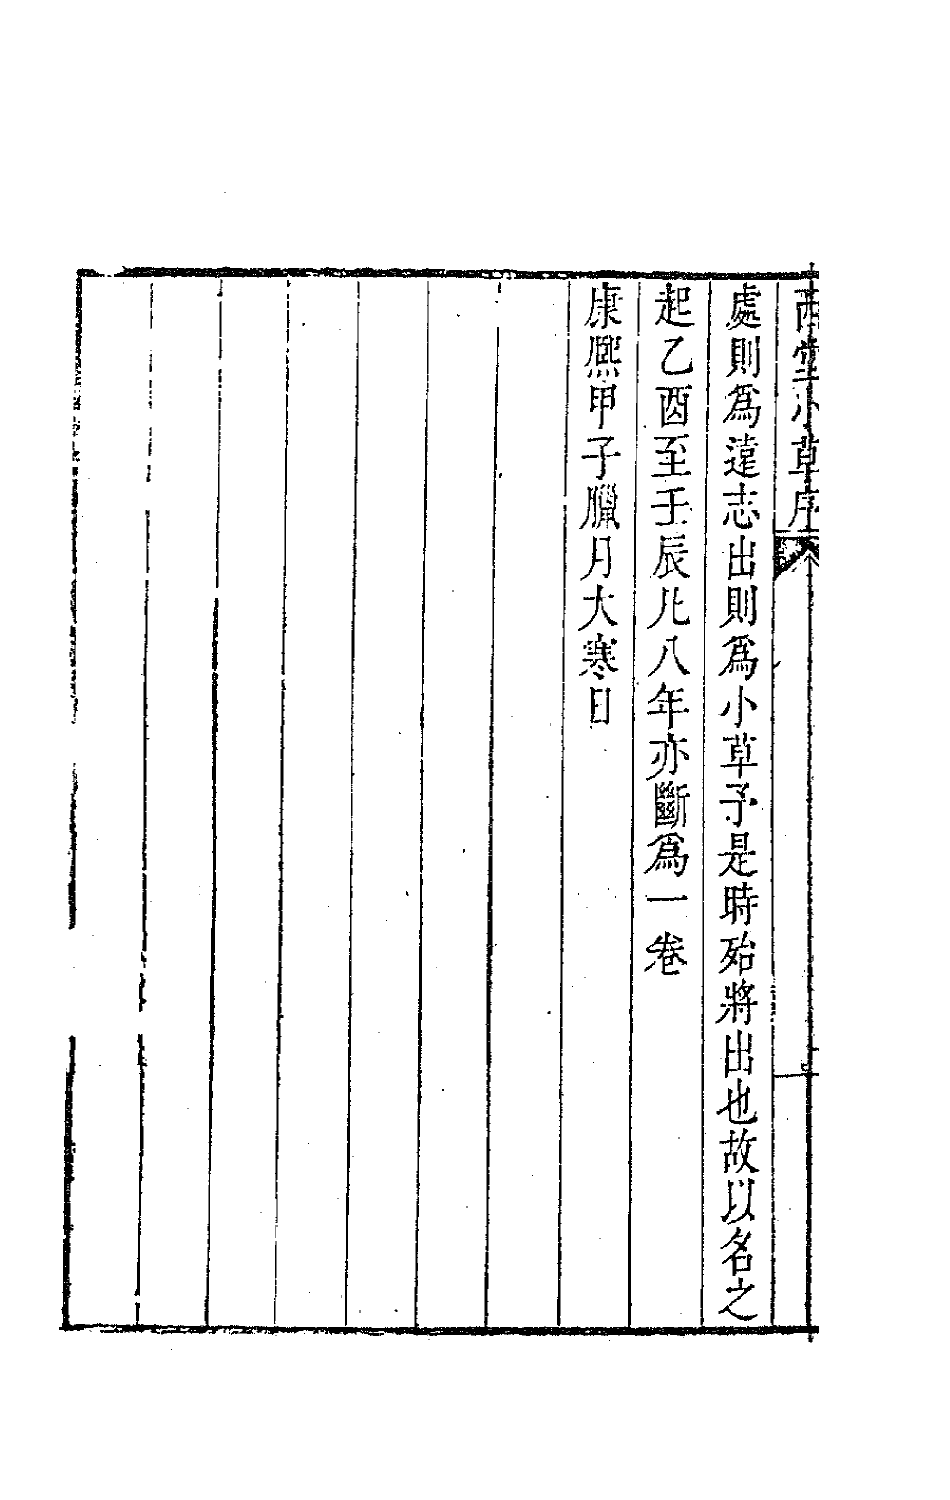 西堂小草序
處則爲遠志出則爲小草予是時殆將出也故以名之
起乙酉至壬辰凡八年亦斷爲一卷
康熙甲子臘月大寒日